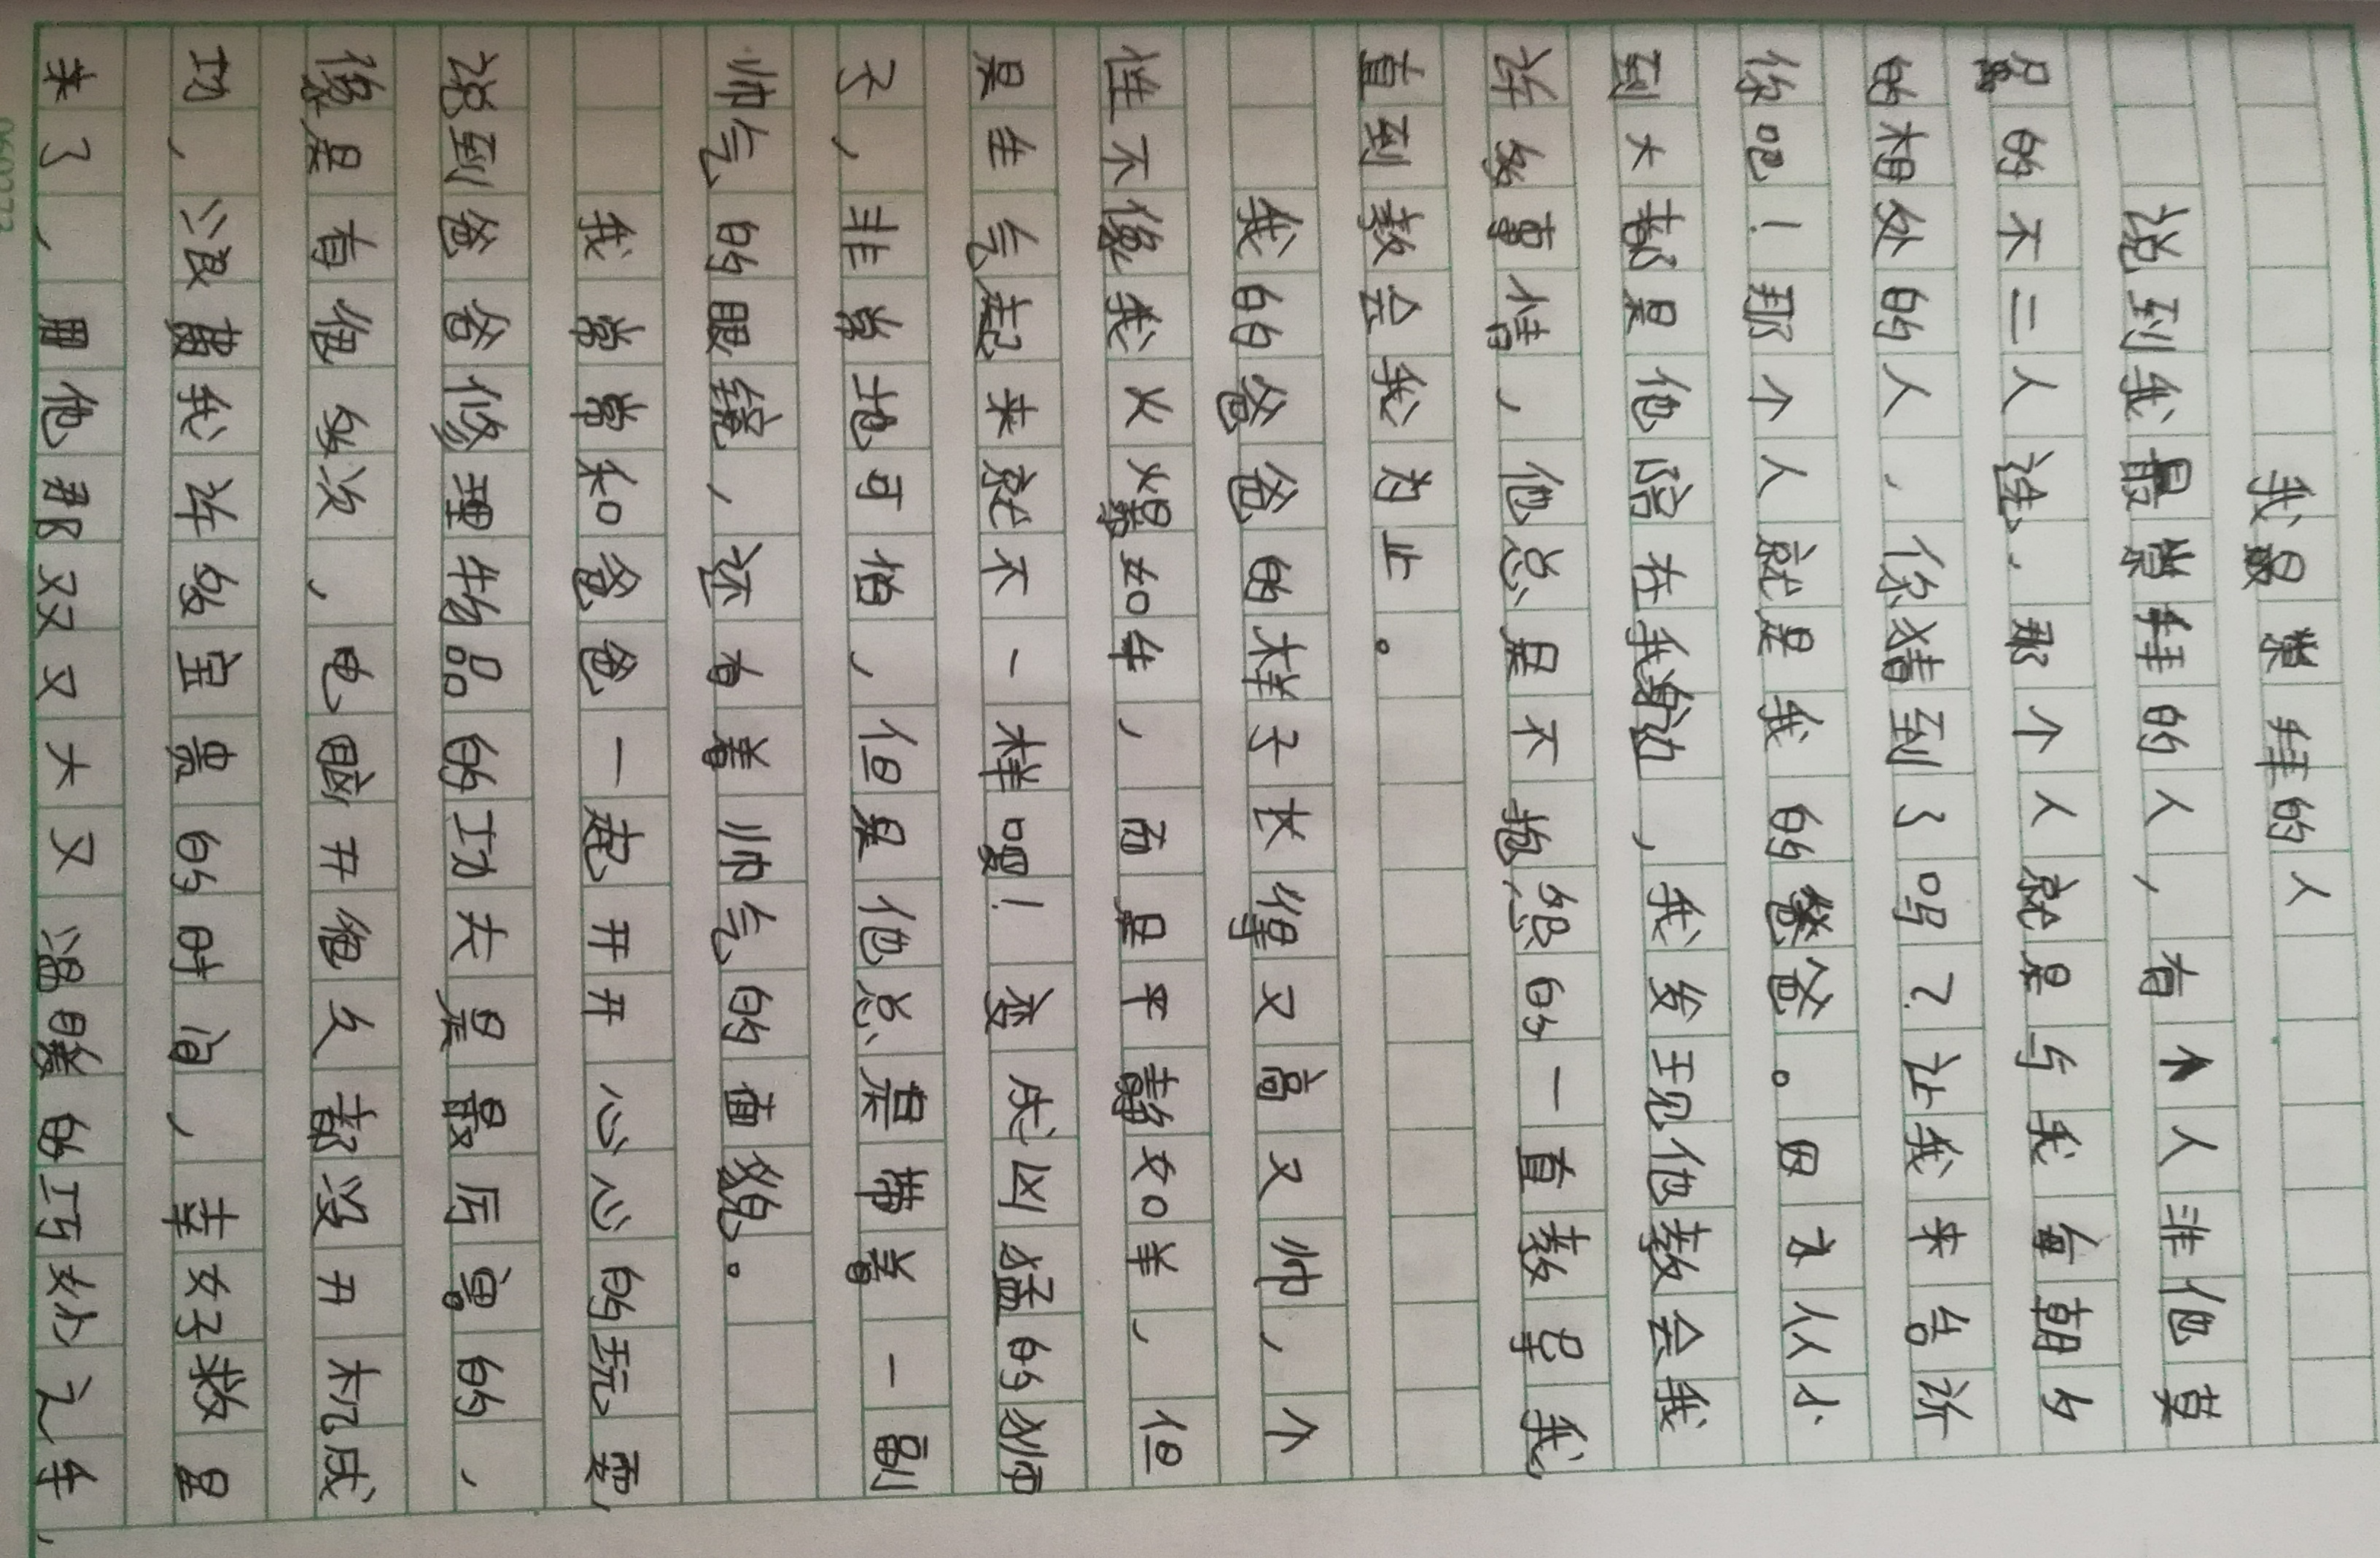 我最崇拜的人
说到我最崇拜的人，有个人非他莫
属的不二人选，那个人就是与我每朝夕
的相处的人，你猜到了吗？让我来告诉
你吧！那个人就是我的爸爸。因为从小
到大都是他陪在我身边，我发现他教会我
许多事情，他总是不抱怨的一直教呈我，
直到教会我为止。
我的爸爸的样子长得又高又帅，个
性不像我火爆如牛，而是平静如羊，但
是生气起来就不一样啰！变成凶猛的狮
子，非常地可怕，但是他总是带着一副
帅气的眼镜，还有着帅气的面貌。
我常常和爸爸一起开开心心的玩耍，
说到爸爸修理物品的功夫是最厉害的，
像是有他多次，电脑开他久都没开机成
功，浪费我许多宝贵的时间，幸好救星
来了，用他那双又大又温暖的巧妙之手，